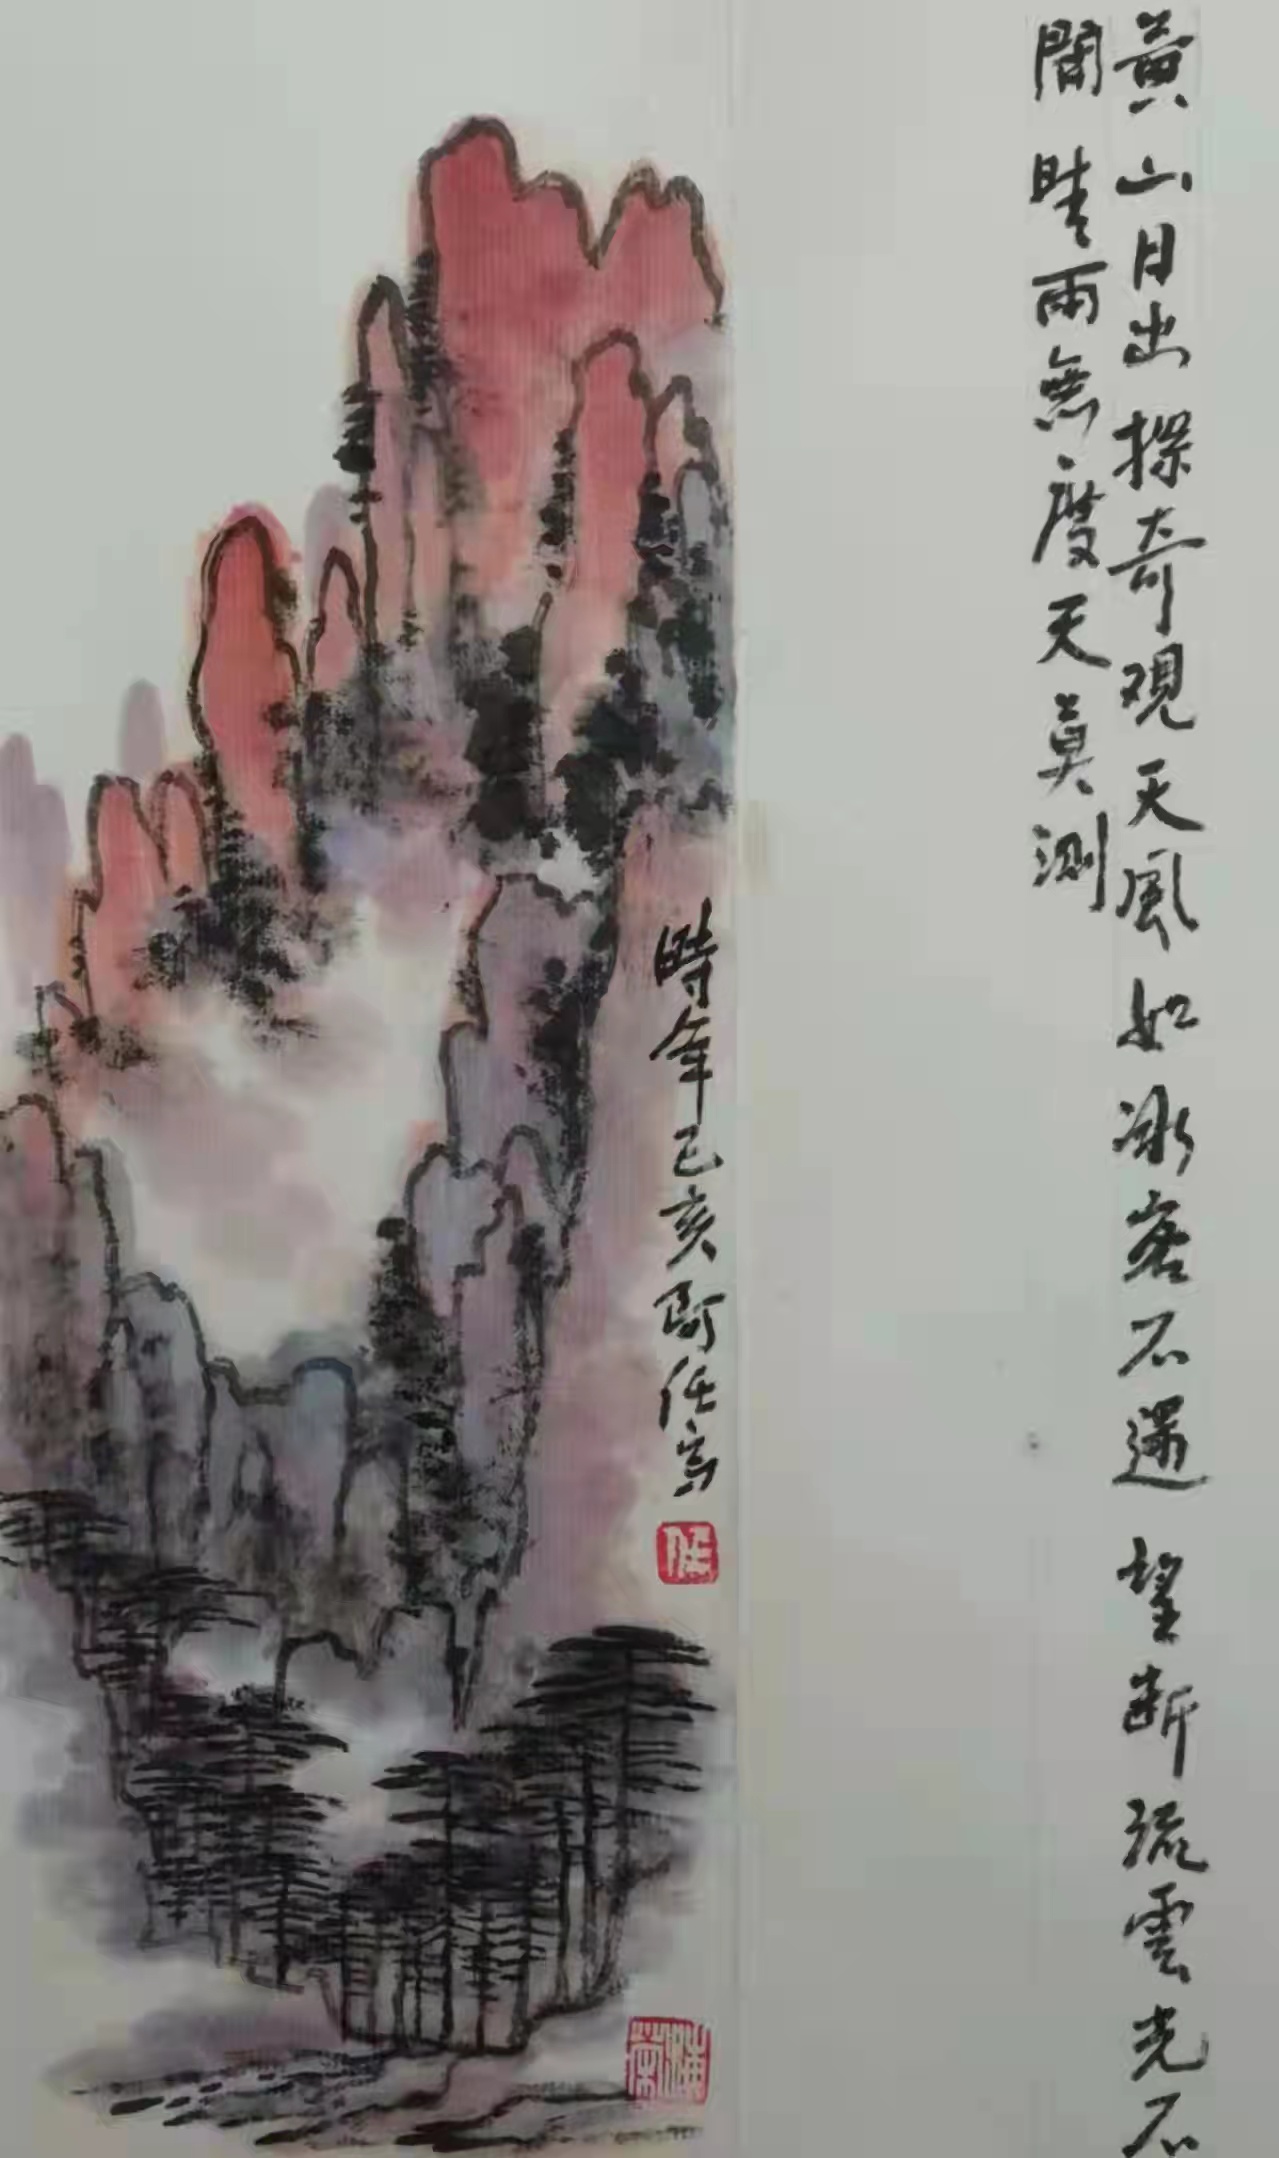 黃山日出探奇观天風如冰客不還望断流雲光不
開晴雨無度天莫測
時年己亥阿任寫
任